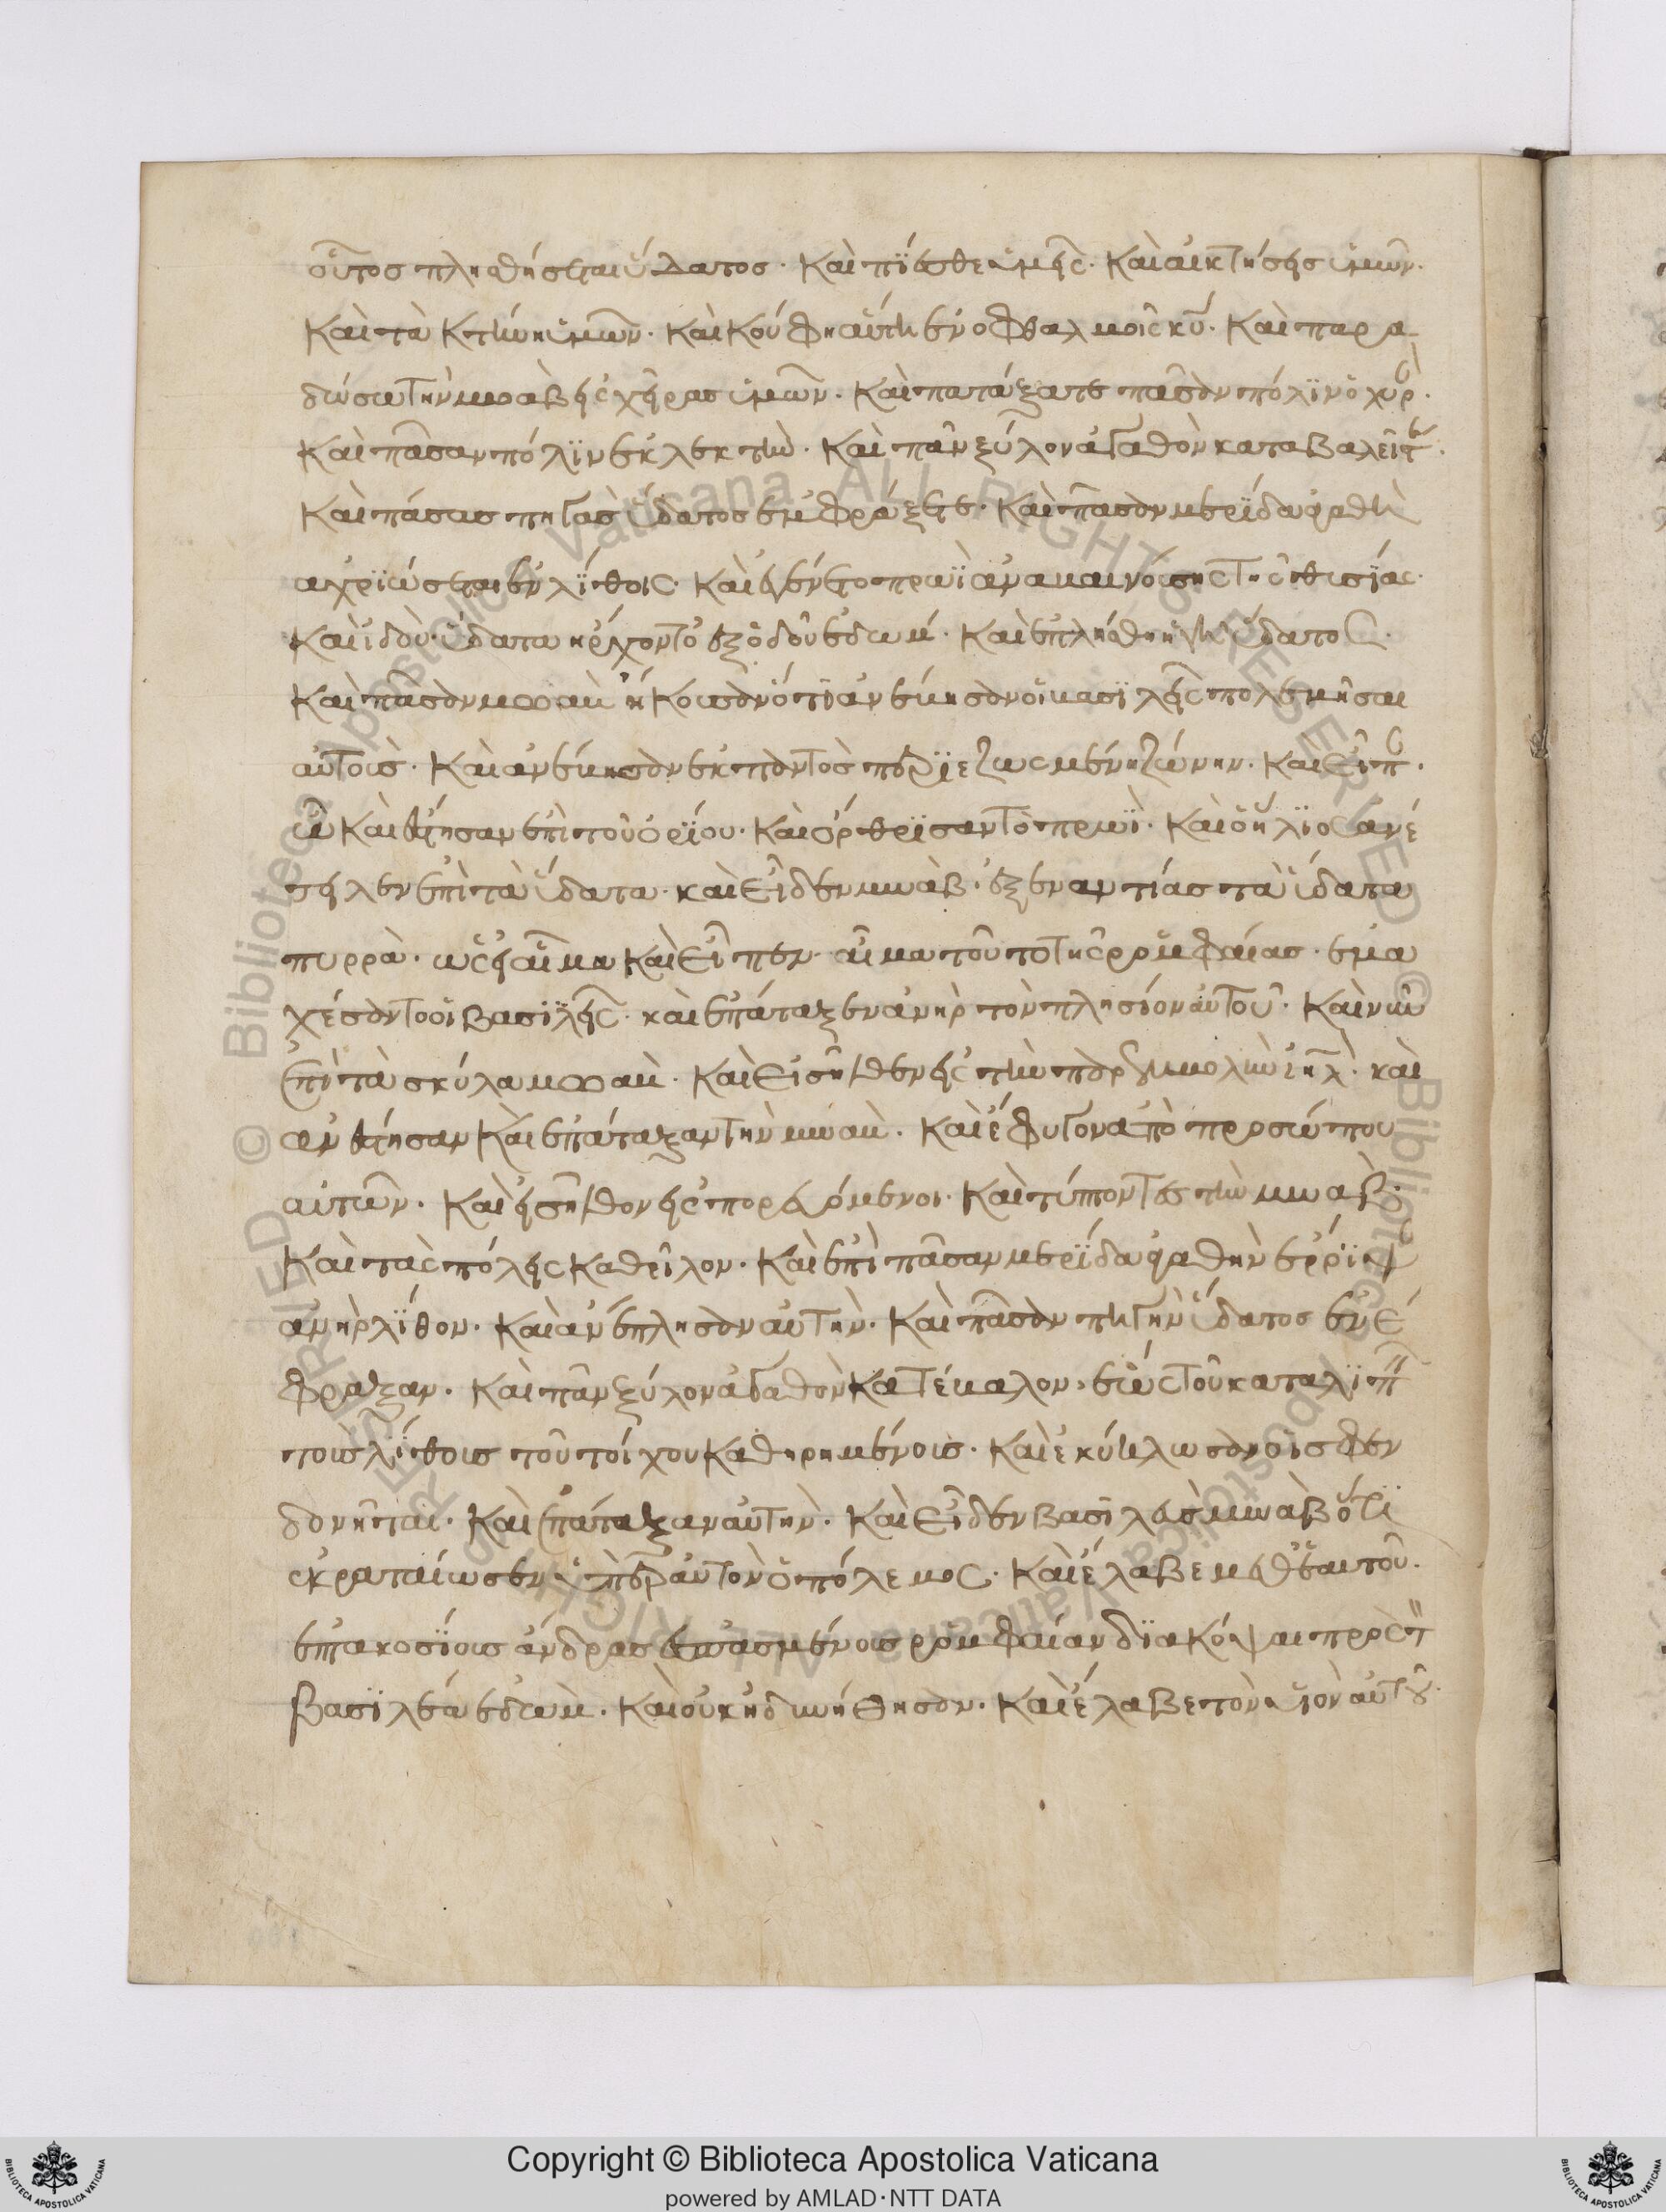 οὗτος πλησθήσεται ὕδατος· καὶ πίεσθε ὑμεῖς· καὶ αἱ κτήσεις ὑμῶν·
καὶ τὰ κτήνη ὑμῶν· καὶ κούφη αὕτη ἐν ὀφθαλμοῖς κυ· καὶ παρα
δώσω τὴν μωὰβ εἰς χεῖρας ὑμῶν· καὶ πατάξατε πᾶσαν πόλιν ὀχυρ·
καὶ πᾶσαν πόλιν ἐκλεκτὴν· καὶ πᾶν ξύλον ἀγαθὸν καταβαλεῖτε·
καὶ πάσας πηγὰς ὕδατος ἐμφράξετε· καὶ πᾶσαν μερίδα ἀγαθὴν
ἀχριώσεται ἐν λίθοις· καὶ ἐγένετο πρωὶ ἀναβαινούσης τῆς θυσίας·
καὶ ἰδοὺ· ὕδατα ἤρχοντο ἐξ ὁδοῦ ἐδώμ· καὶ ἐπλήσθη ἡ γῆ ὕδατος·
καὶ πᾶσαν μωὰβ ἤκουσαν ὅτι ἀνέβησαν οἱ βασιλεῖς πολεμῆσαι
αὐτοὺς· καὶ ἀνέβησαν ἐκ παντὸς περιεζωσμένη ζώνην· καὶ εἶπ·
ὢ καὶ ἔστησαν ἐπὶ τοῦ ὁρίου· καὶ ὤρθρισαν τὸ πρωὶ· καὶ ὁ ἥλιος ἀνέ
τειλεν ἐπὶ τὰ ὕδατα· καὶ εἶδεν μωὰβ· ἐξ ἐναντίας τὰ ὕδατα
πυρρὰ· ὡσεὶ αἷμα καὶ εἶπεν· αἷμα τοῦτο τῆς ρομφαίας· ἐμα
χέσαντο οἱ βασιλεῖς· καὶ ἐπάταξεν ἀνὴρ τὸν πλησίον αὐτοῦ· καὶ νῦν
ἐπὶ τὰ σκύλα μωὰβ· καὶ εἰσῆλθεν εἰς τὴν παρεμβολὴν ιηλ· καὶ
ἀνέστησαν καὶ ἐπάταξαν τὴν μωὰβ· καὶ ἔφυγον ἀπὸ προσώπου
αὐτῶν· καὶ εἰσῆλθον εἰσπορευόμενοι· καὶ τύπτοντες τὴν μωὰβ·
καὶ τὰς πόλεις καθεῖλον· καὶ ἐπὶ πᾶσαν μερίδα ἀγαθὴν ἔρριψ
ἀνὴρ λίθον· καὶ ἀνέπλησαν αὐτὴν· καὶ πᾶσαν πηγὴν ὕδατος ἐνέ
φραξαν· καὶ πᾶν ξύλον ἀγαθὸν κατέβαλον· ἕως τοῦ καταλιπ
τοὺς λίθους τοῦ τοίχου καθηρημένους· καὶ ἐκύκλωσαν οἱ σφεν
δονῆται· καὶ ἐπάταξαν αὐτὴν· καὶ εἶδεν βασιλεὺς μωὰβ ὅτι
ἐκραταίωσεν ὑπὲρ αὐτὸν ὁ πόλεμος· καὶ ἔλαβε μεθ' ἑαυτοῦ·
ἑπτακοσίους ἄνδρας ἐσπασμένους ρομφαίαν διακόψαι πρὸς τ
βασιλέα ἐδὼμ· καὶ οὐκ ἠδυνήθησαν· καὶ ἔλαβε τὸν υἱὸν αὐτοῦ·
Copyright © Biblioteca Apostolica Vaticana
powered by AMLAD·NTT DATA